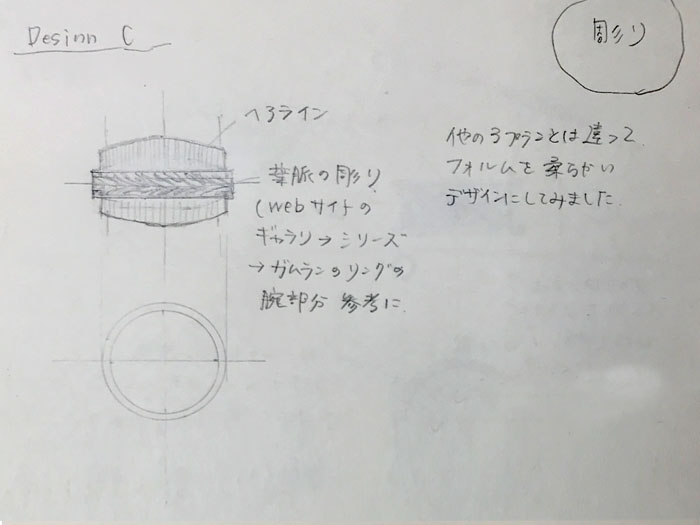 Design C
彫り
ヘラライン
葉脈の彫り
(webサイトの
ギャラリー→シリーズ
→ガムランのリングの
腕部分 参考に.
他の3プランとは違って
フォルムを柔らかい
デザインにしてみました.